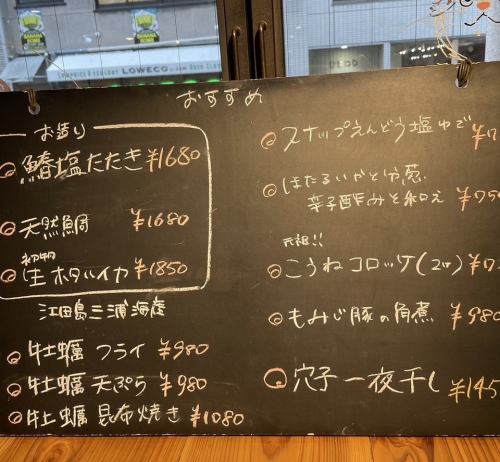 LOWECO
おすすめ
お造り
鰆塩たたき ¥1680
天然鯛 ¥1680
初物
生ホタルイカ ¥1850
江田島三浦海産
牡蠣 フライ ¥980
牡蠣 天ぷら ¥980
牡蠣 昆布焼き ¥1080
スナップえんどう塩ゆで ¥7
ほたるいかと分葱
辛子酢みそ和え ¥750
元祖!!
こうねコロッケ(2ヶ) ¥7
もみじ豚の角煮 ¥980
穴子一夜干し ¥145